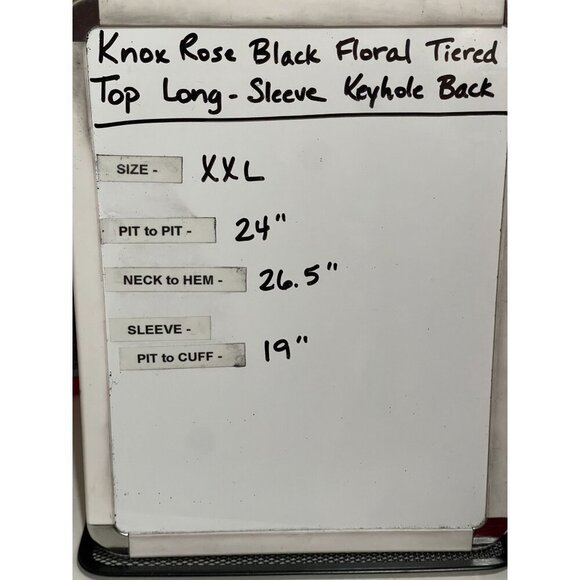 Knox Rose Black Floral Tiered
Top Long-Sleeve Keyhole Back
SIZE - XXL
PIT to PIT - 24"
NECK to HEM - 26.5"
SLEEVE -
PIT to CUFF - 19"